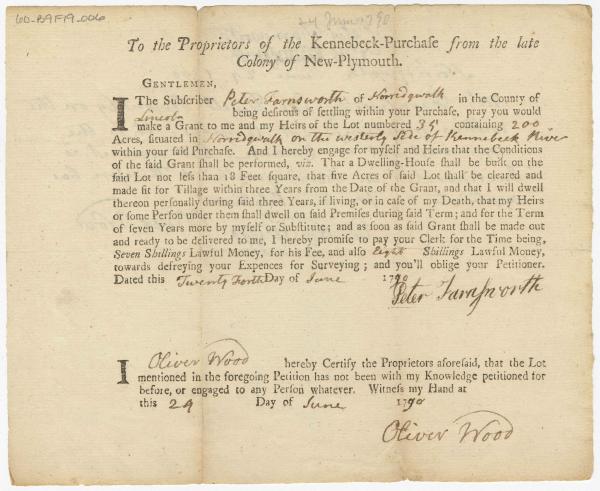 60-B9F19-006
24 June 1790
To the Proprietors of the Kennebeck-Purchase from the late
Colony of New-Plymouth.
GENTLEMEN,
I The Subscriber Peter Farnsworth of Norredgwalk in the County of
Lincoln being desirous of settling within your Purchase, pray you would
make a Grant to me and my Heirs of the Lot numbered 35 containing 200
Acres, situated in Norredgwalk on the westerly side of Kennebeck River
within your said Purchase. And I hereby engage for myself and Heirs that the Conditions
of the said Grant shall be performed, viz. That a Dwelling-House shall be built on the
said Lot not less than 18 Feet square, that five Acres of said Lot shall be cleared and
made fit for Tillage within three Years from the Date of the Grant, and that I will dwell
thereon personally during said three Years, if living, or in case of my Death, that my Heirs
or some Person under them shall dwell on said Premises during said Term; and for the Term
of seven Years more by myself or Substitute; and as soon as said Grant shall be made out
and ready to be delivered to me, I hereby promise to pay your Clerk for the Time being,
Seven Shillings Lawful Money, for his Fee, and also Eight Shillings Lawful Money,
towards defreying your Expences for Surveying; and you'll oblige your Petitioner.
Dated this Twenty Forth Day of June 1790
Peter Farnsworth
I Oliver Wood hereby Certify the Proprietors aforesaid, that the Lot
mentioned in the foregoing Petition has not been with my Knowledge petitioned for
before, or engaged to any Person whatever. Witness my Hand at
this 24 Day of June 1790
Oliver Wood